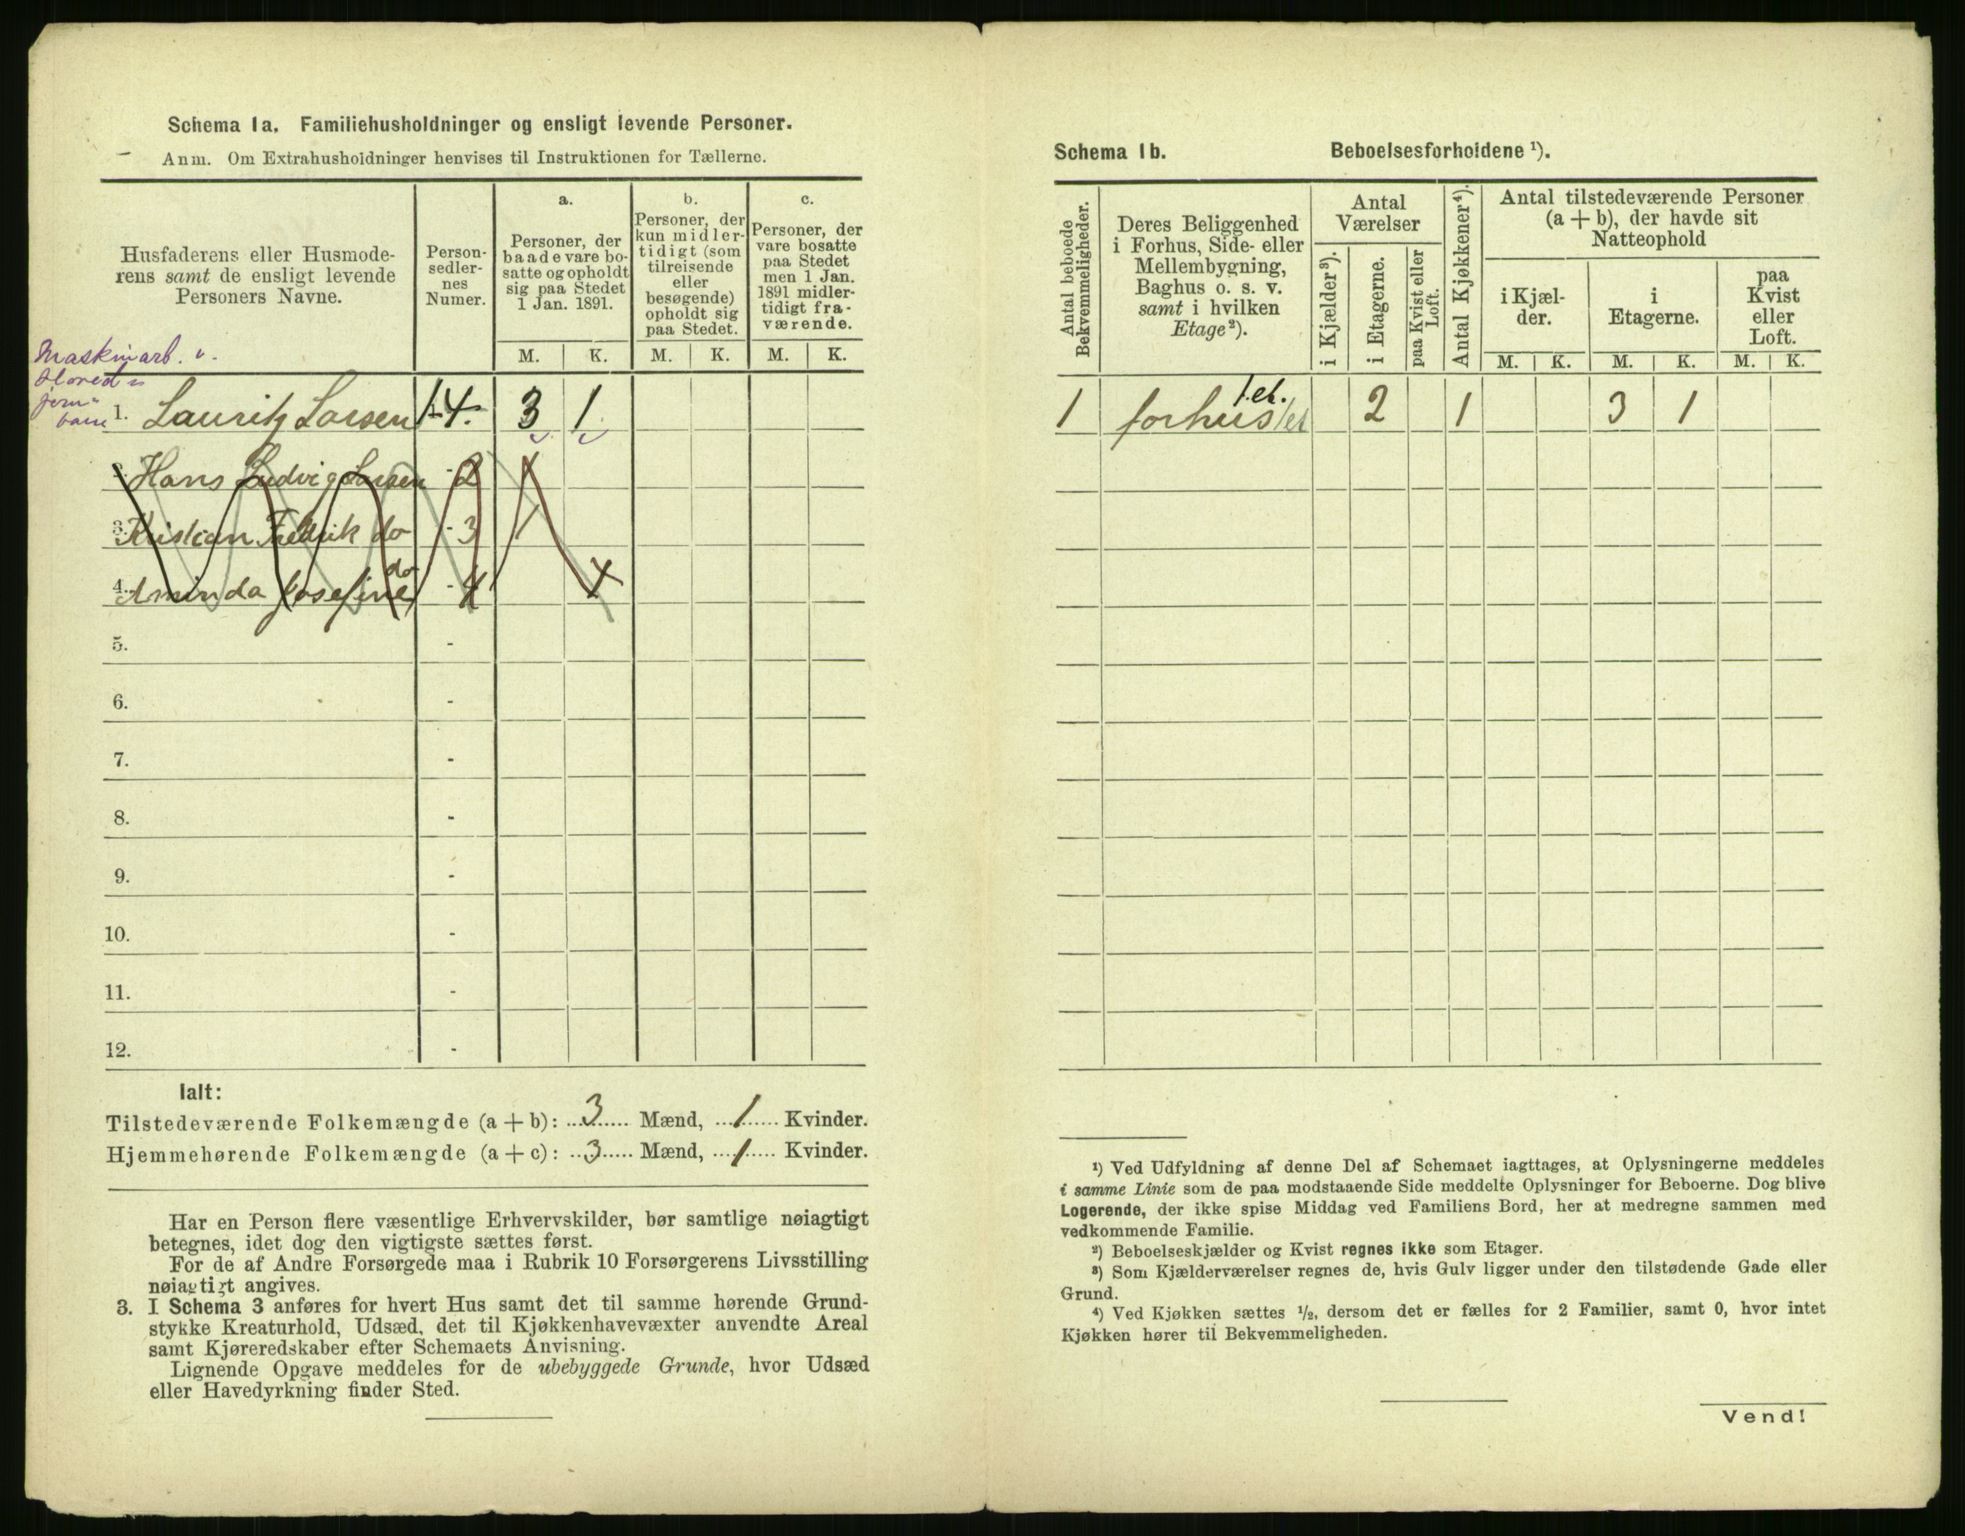 Schema 1a. Familiehusholdninger og ensligt levende Personer.
Anm. Om Extrahusholdninger henvises til Instruktionen for Tællerne.
Husfaderens eller Husmode-
rens samt de ensligt levende
Personers Navne.
Person-
sedler-
nes
Numer.
a.
Personer, der
baade vare bo-
satte og opholdt
sig paa Stedet
1 Jan. 1891.
b.
Personer, der
kun midler-
tidigt (som
tilreisende
eller
besøgende)
opholdt sig
paa Stedet.
c.
Personer, der
vare bosatte
paa Stedet
men 1 Jan.
1891 midler-
tidigt fra-
værende.
M. K. M. K. M. K.
Maskinarb. v.
Hoved
jern-
bane
1. Lauritz Larsen 1-4. 3 1
2. Hans Ludvig Larsen - 2 1
3. Kristian Fredrik do - 3 1
do
4. Aminda Josefine - 4 1
5. -
6. -
7. -
8. -
9. -
10. -
11. -
12. -
Ialt:
Tilstedeværende Folkemængde (a + b): 3 Mænd, 1 Kvinder.
Hjemmehørende Folkemængde (a + c): 3 Mænd, 1 Kvinder.
Har en Person flere væsentlige Erhvervskilder, bør samtlige nøiagtigt
betegnes, idet dog den vigtigste sættes først.
For de af Andre Forsørgede maa i Rubrik 10 Forsørgerens Livsstilling
nøiagtigt angives.
3. I Schema 3 anføres for hvert Hus samt det til samme hørende Grund-
stykke Kreaturhold, Udsæd, det til Kjøkkenhavevæxter anvendte Areal
samt Kjøreredskaber efter Schemaets Anvisning.
Lignende Opgave meddeles for de ubebyggede Grunde, hvor Udsæd
eller Havedyrkning finder Sted.
Schema 1b. Beboelsesforholdene ¹).
Antal beboede
Bekvemmeligheder.
Deres Beliggenhed
i Forhus, Side- eller
Mellembygning,
Baghus o. s. v.
samt i hvilken
Etage ²).
Antal
Værelser
i Kjælder ³).
i Etagerne.
paa Kvist eller
Loft.
Antal Kjøkkener ⁴).
Antal tilstedeværende Personer
(a + b), der havde sit
Natteophold
i Kjæl-
der.
i
Etagerne.
paa
Kvist
eller
Loft.
M. K. M. K. M. K.
1.et.
1 forhus 1et 2 1 3 1
¹) Ved Udfyldning af denne Del af Schemaet iagttages, at Oplysningerne meddeles
i samme Linie som de paa modstaaende Side meddelte Oplysninger for Beboerne. Dog blive
Logerende, der ikke spise Middag ved Familiens Bord, her at medregne sammen med
vedkommende Familie.
²) Beboelseskjælder og Kvist regnes ikke som Etager.
³) Som Kjælderværelser regnes de, hvis Gulv ligger under den tilstødende Gade eller
Grund.
⁴) Ved Kjøkken sættes ½, dersom det er fælles for 2 Familier, samt 0, hvor intet
Kjøkken hører til Bekvemmeligheden.
Vend!